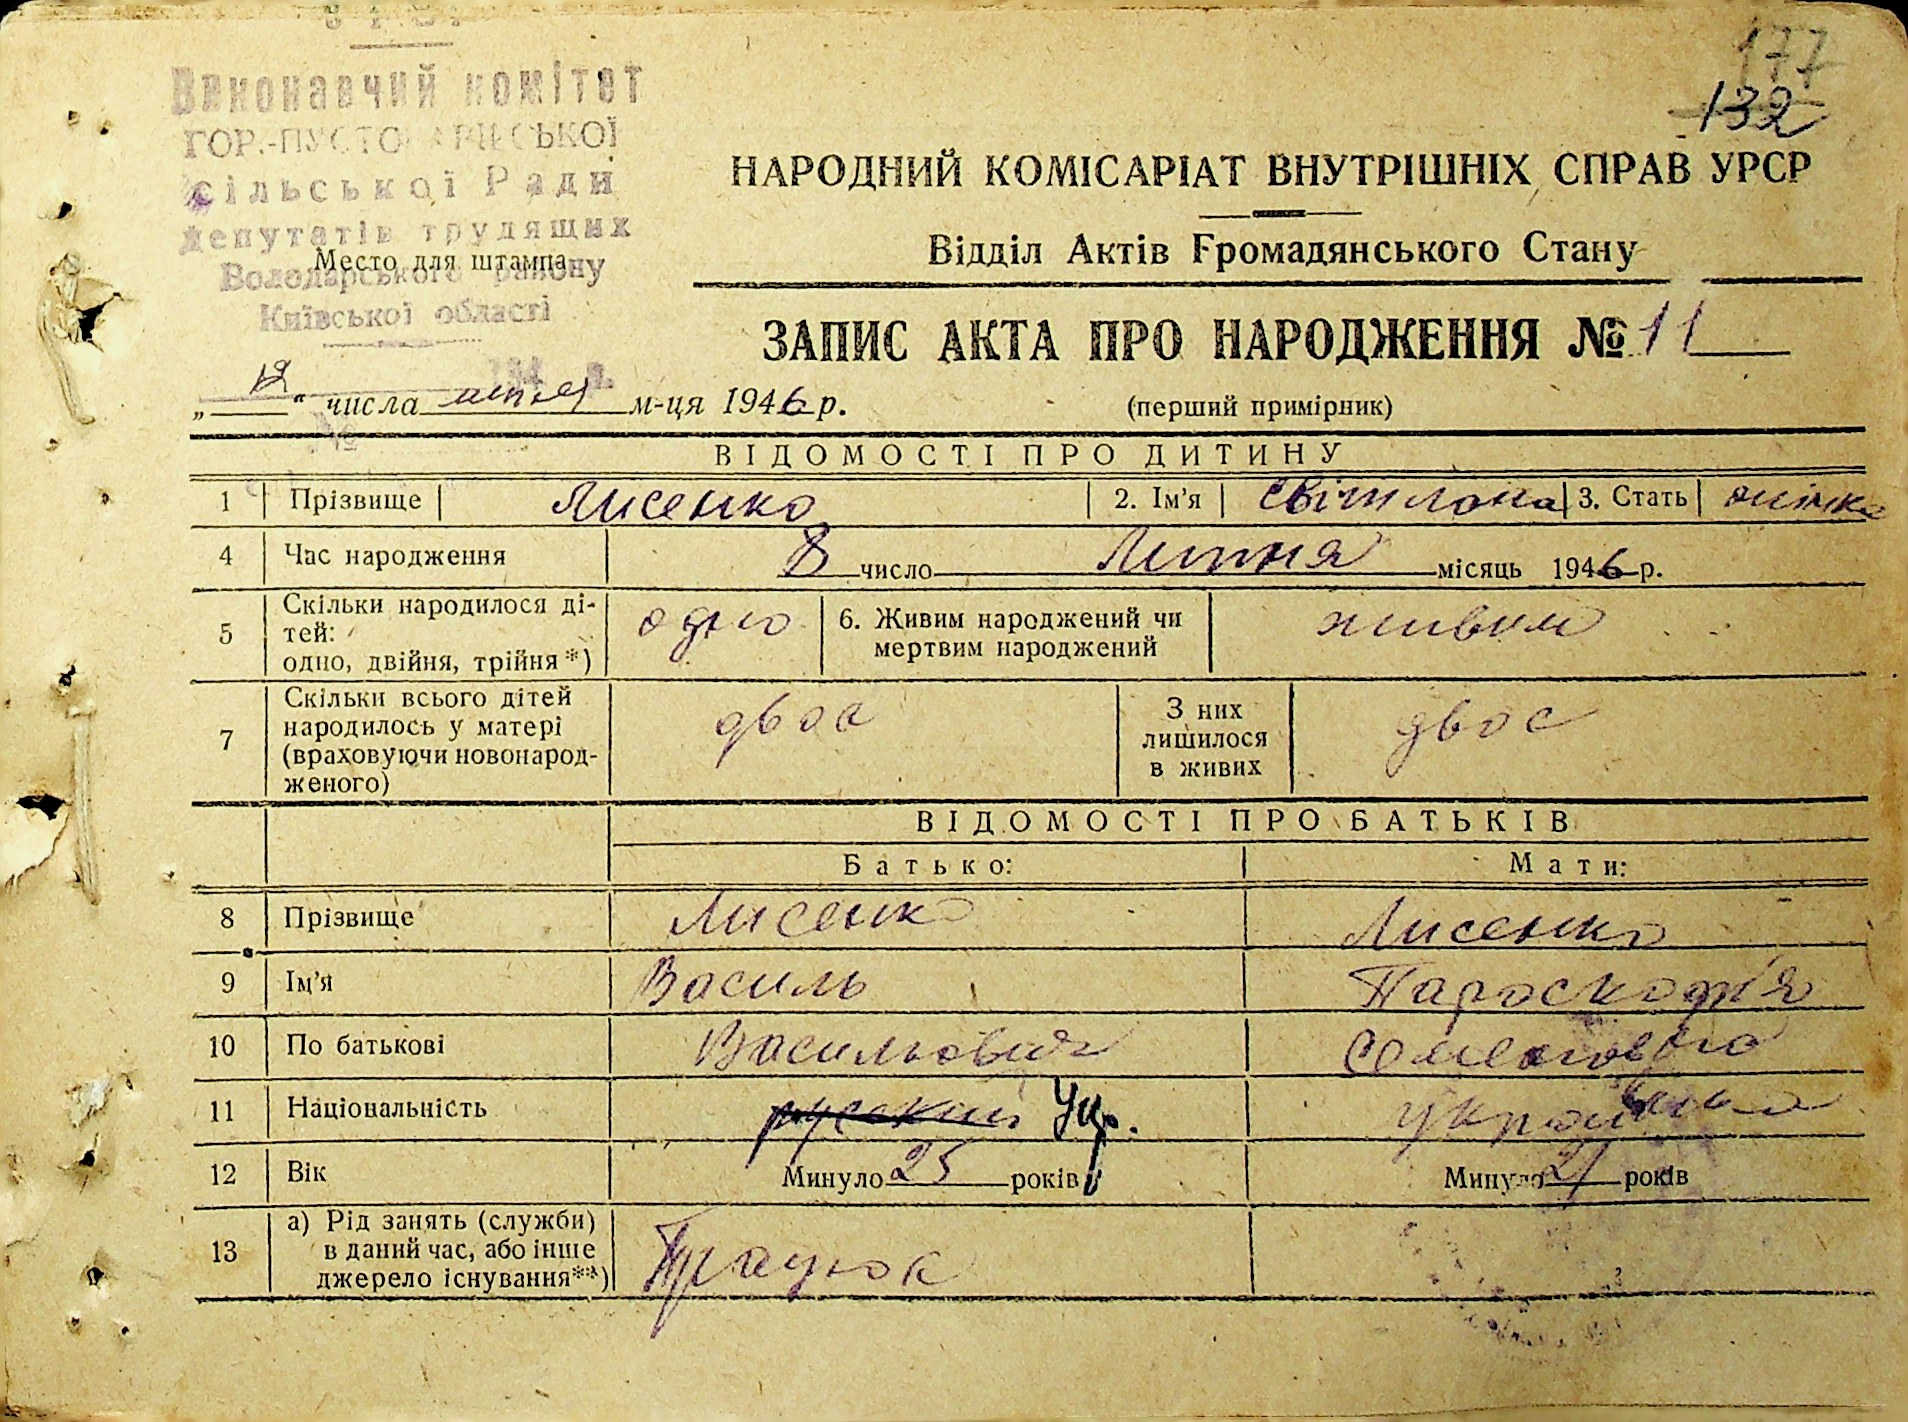 177
132
Виконавчий комітет
ГОР.-ПУСТОВАРІВСЬКОЇ
сільської Ради
депутатів трудящих
Место для штампа
Володарського району
Київської області
НАРОДНИЙ КОМІСАРІАТ ВНУТРІШНІХ СПРАВ УРСР
Відділ Актів Громадянського Стану
ЗАПИС АКТА ПРО НАРОДЖЕННЯ № 11
„12“ числа липня м-ця 1946 р.
(перший примірник)
ВІДОМОСТІ ПРО ДИТИНУ
1 Прізвище Лисенко 2. Ім'я Світлона 3. Стать жінка
4 Час народження 8 число Липня місяць 1946 р.
5 Скільки народилося ді-
тей:
одно, двійня, трійня*) одно
6. Живим народжений чи
мертвим народжений живим
7 Скільки всього дітей
народилось у матері
(враховуючи новонарод-
женого) двоє
З них
лишилося
в живих двоє
ВІДОМОСТІ ПРО БАТЬКІВ
Батько: Мати:
8 Прізвище Лисенко Лисенко
9 Ім'я Василь Пароскофія
10 По батькові Васильович Семеновна
11 Національність русский Укр. українка
12 Вік Минуло 25 років Минуло 21 років
13 а) Рід занять (служби)
в даний час, або інше
джерело існування**)